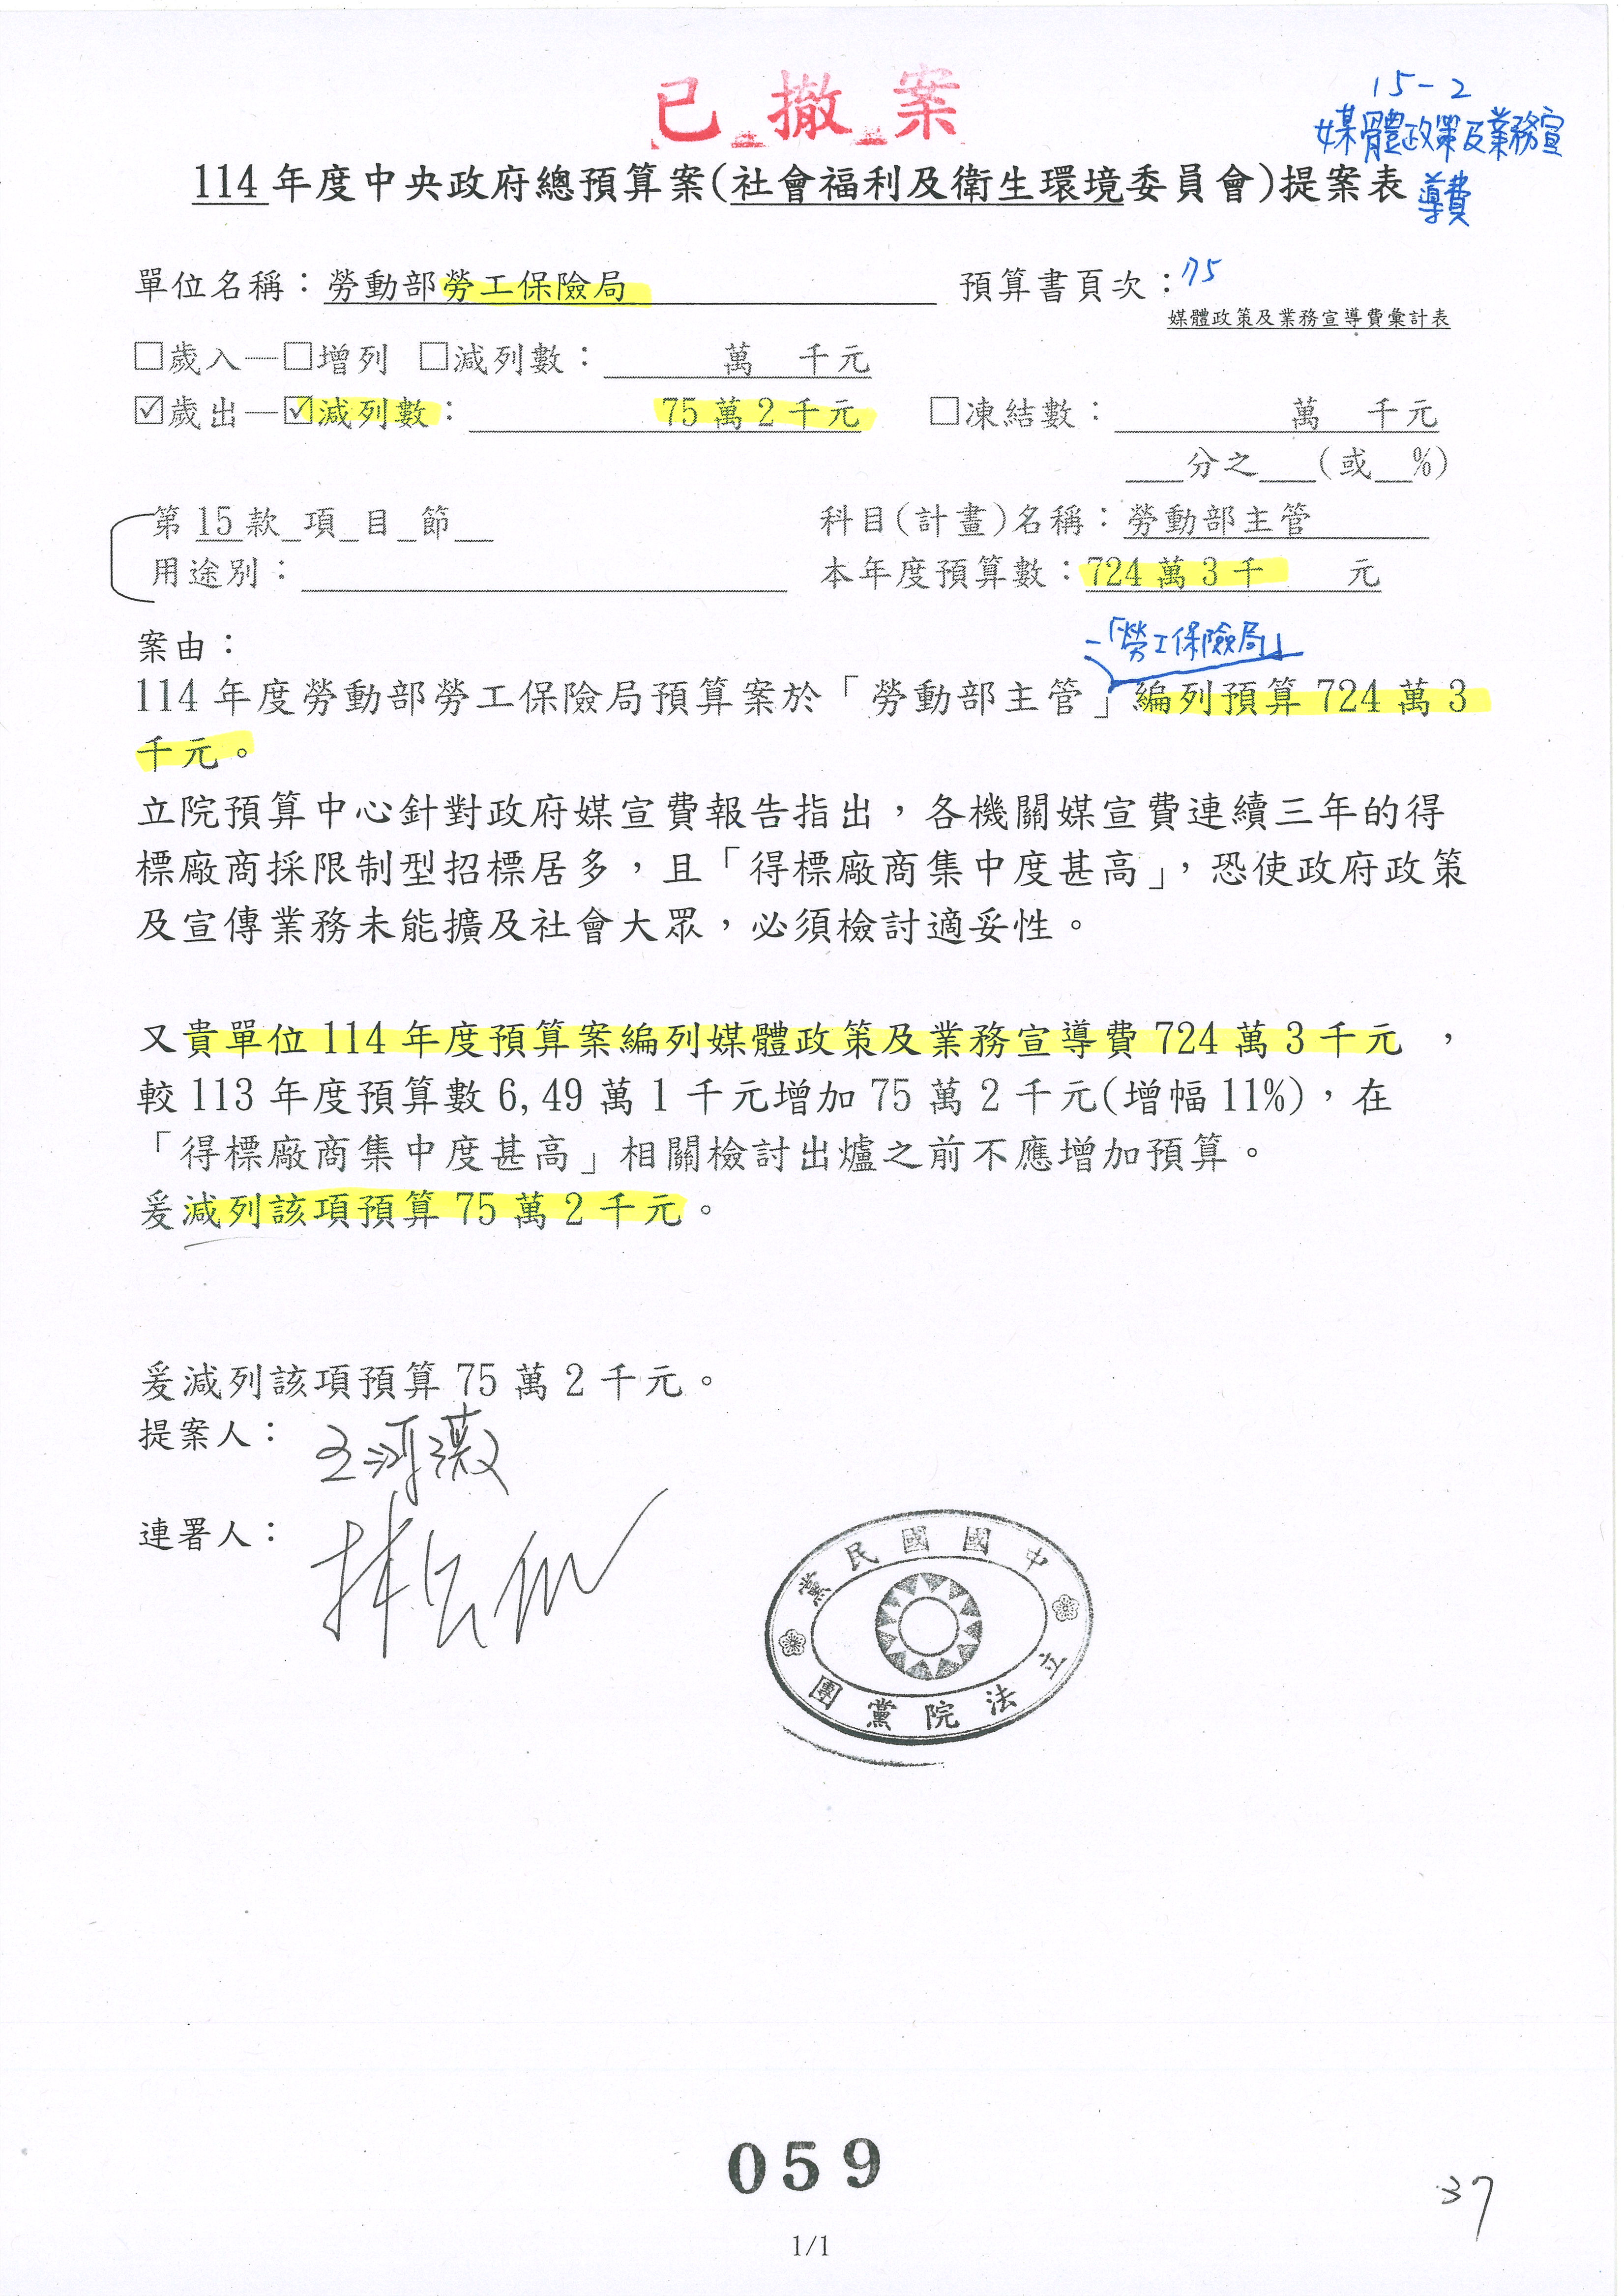 已撤案
15-2
媒體政策及業務宣
導費
114年度中央政府總預算案(社會福利及衛生環境委員會)提案表
單位名稱：勞動部勞工保險局 預算書頁次：75
媒體政策及業務宣導費彙計表
□歲入—□增列 □減列數： 萬 千元
☑歲出—☑減列數： 75萬2千元 □凍結數： 萬 千元
___分之___(或__%)
第15款_項_目_節__ 科目(計畫)名稱：勞動部主管
用途別： 本年度預算數：724萬3千 元
案由：
-「勞工保險局」
114年度勞動部勞工保險局預算案於「勞動部主管」編列預算724萬3
千元。
立院預算中心針對政府媒宣費報告指出，各機關媒宣費連續三年的得
標廠商採限制型招標居多，且「得標廠商集中度甚高」，恐使政府政策
及宣傳業務未能擴及社會大眾，必須檢討適妥性。
又貴單位114年度預算案編列媒體政策及業務宣導費724萬3千元 ，
較113年度預算數6,49萬1千元增加75萬2千元(增幅11%)，在
「得標廠商集中度甚高」相關檢討出爐之前不應增加預算。
爰減列該項預算75萬2千元。
爰減列該項預算75萬2千元。
提案人：
連署人：
中國國民黨
立法院黨團
059
37
1/1